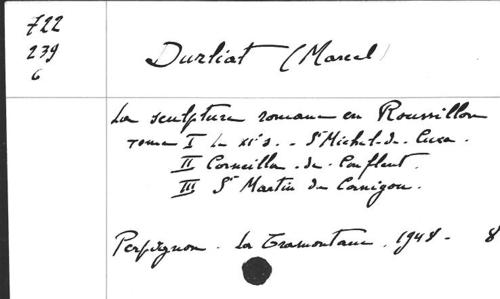 722
239
6
Durliat (Marcel)
La sculpture romane en Roussillon
Tome I Le XIe s. - St Michel-de-Cuxa
II Corneilla-de-Conflent.
III St Martin du Canigou.
Perpignan. La Tramontane. 1948 - 8